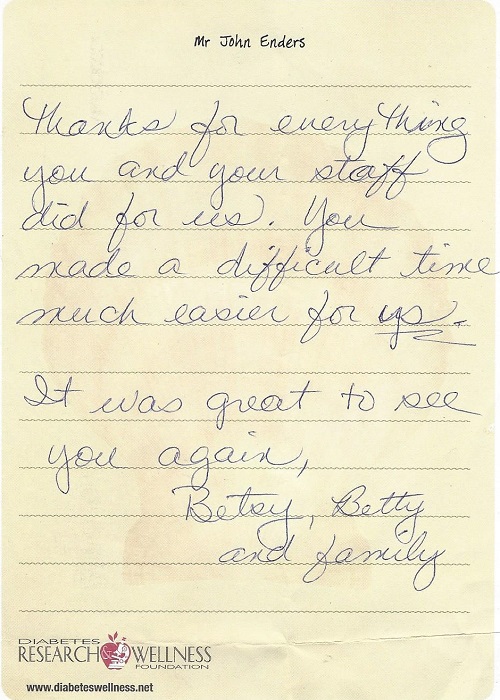 Mr John Enders
Thanks for everything
you and your staff
did for us. You
made a difficult time
much easier for us.
It was great to see
you again,
Betsy, Betty
and family
DIABETES
RESEARCH WELLNESS
FOUNDATION
www.diabeteswellness.net